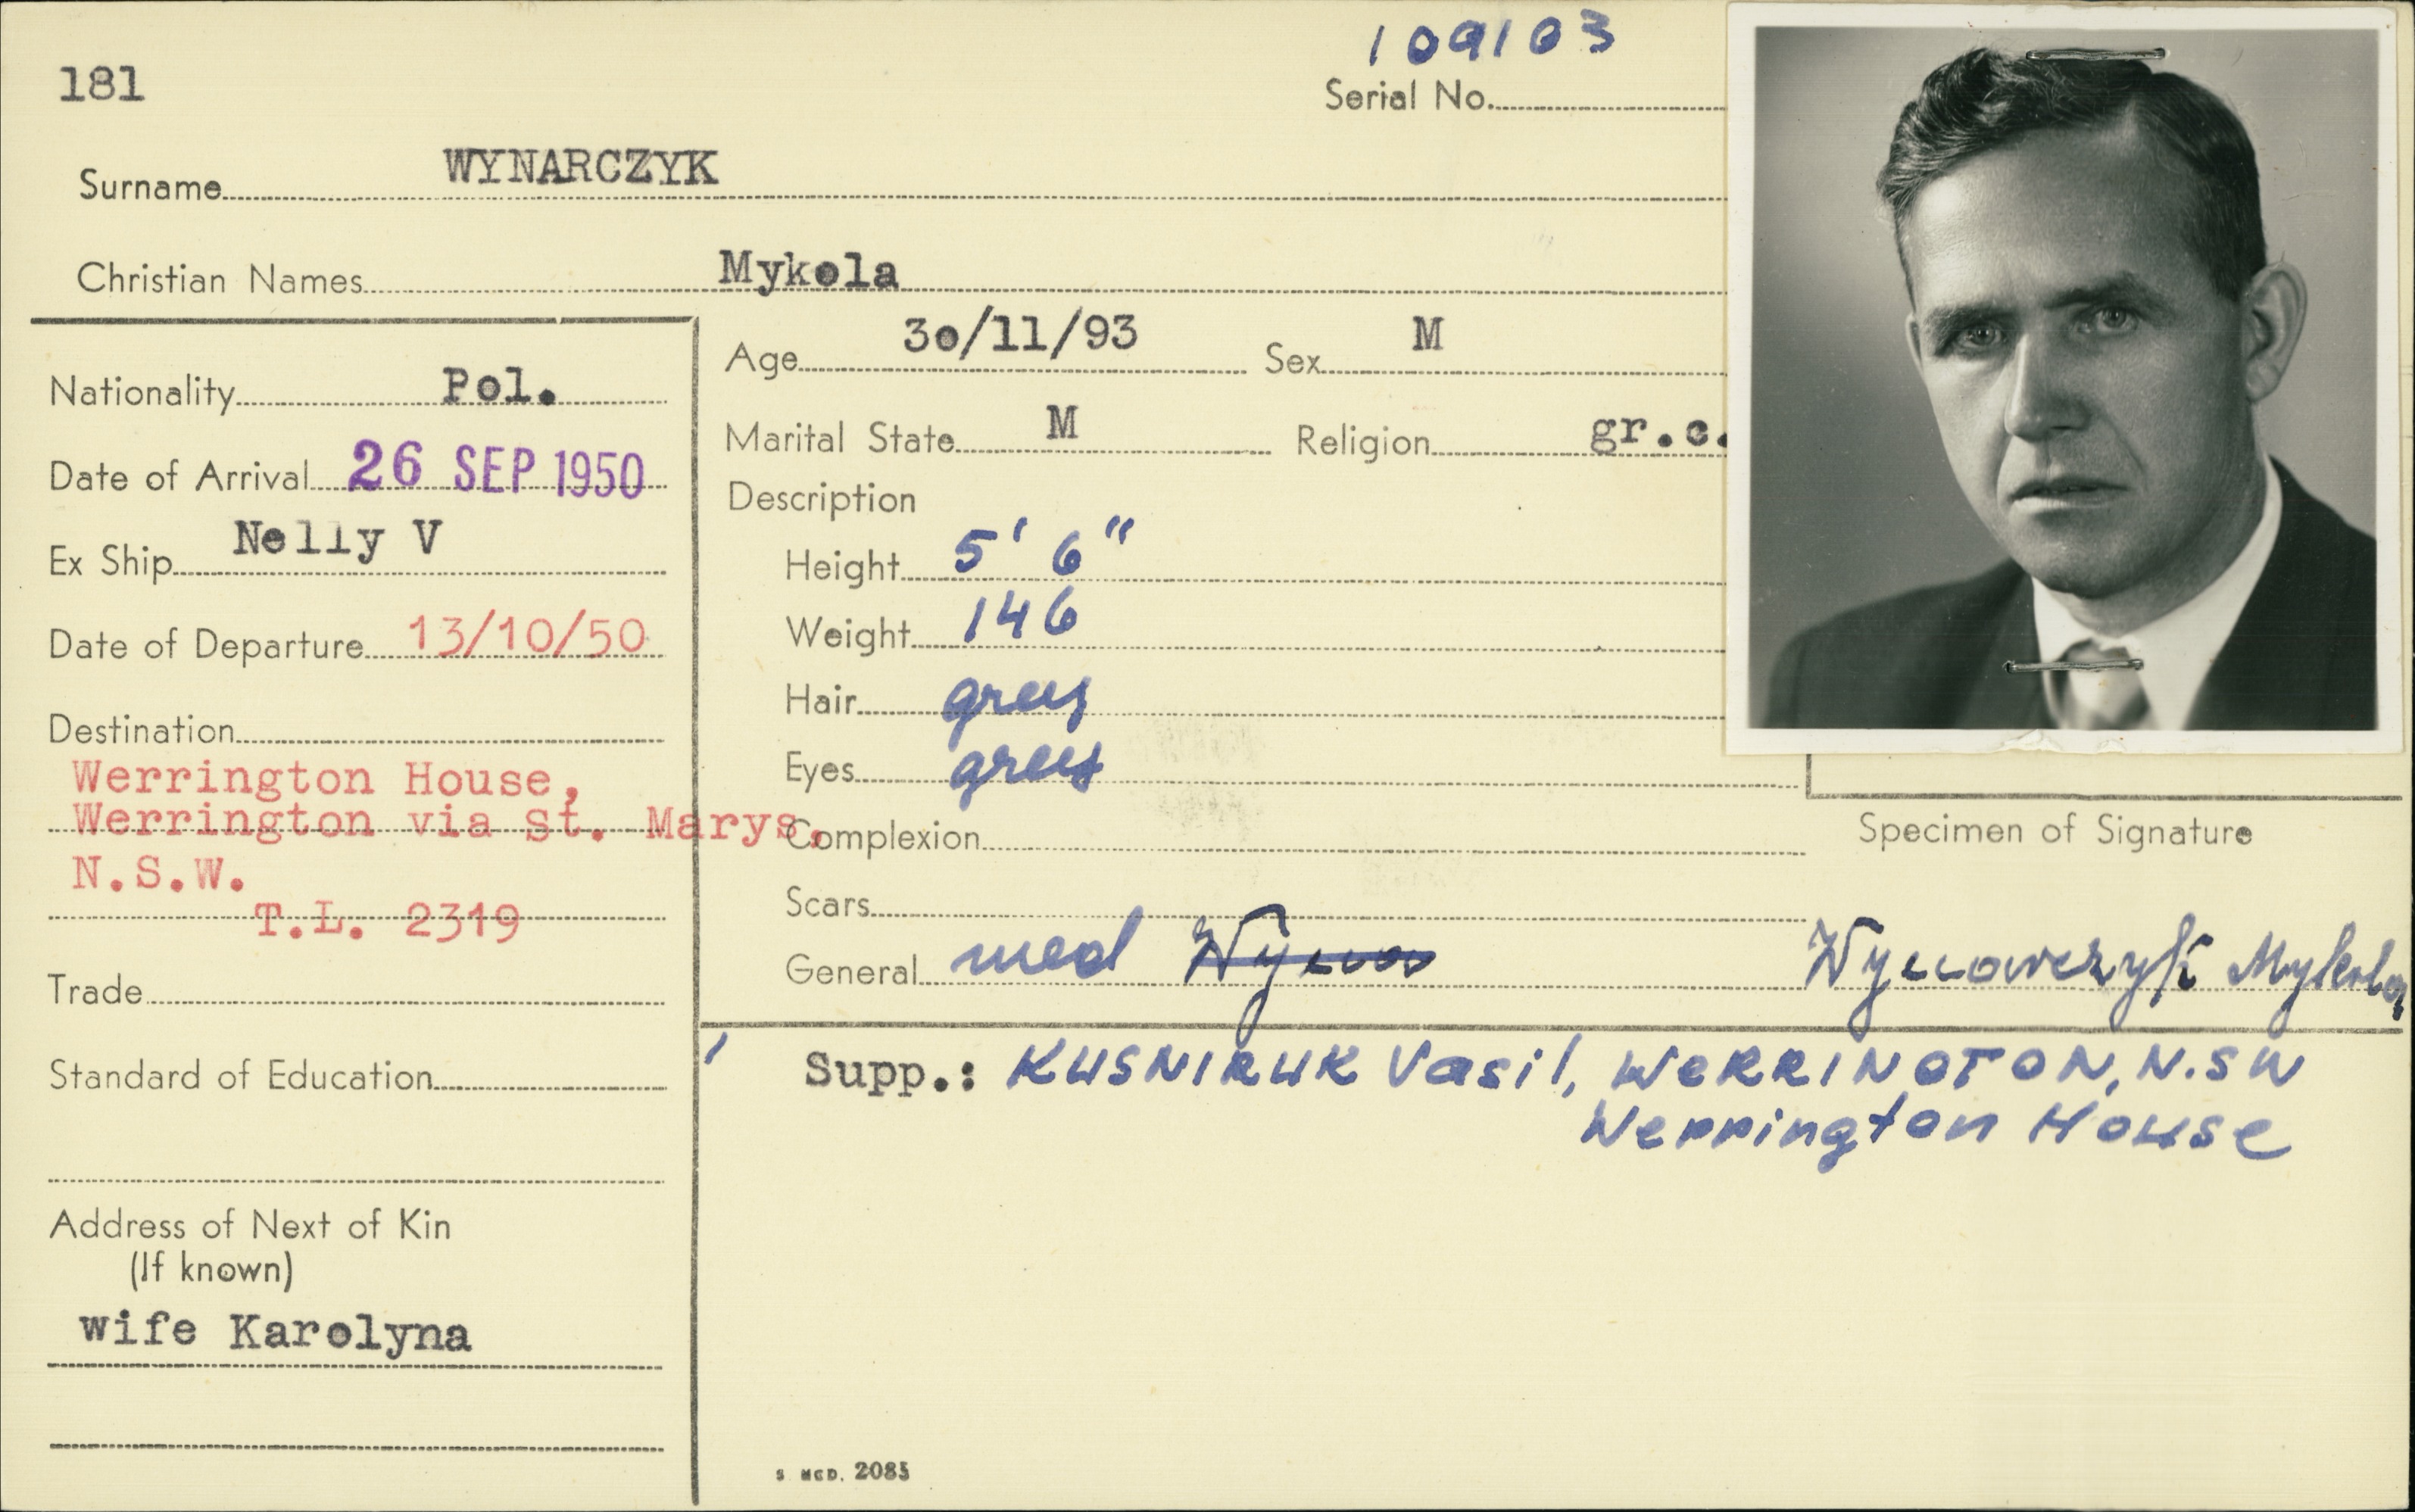 109103
181
Serial No.
Surname WYNARCZYK
Christian Names Mykola
Nationality Pol.
Date of Arrival 26 SEP 1950
Ex Ship Nelly V
Date of Departure 13/10/50
Destination
Werrington House,
Werrington via St. Marys,
N.S.W.
T.L. 2319
Trade
Standard of Education
Address of Next of Kin
(If known)
wife Karolyna
Age 30/11/93 Sex M
Marital State M Religion gr.c.
Description
Height 5' 6"
Weight 146
Hair grey
Eyes grey
Complexion
Scars
General med
Specimen of Signature
Wynarczyk Mykola
Supp.: KUSNIRUK Vasil, WERRINGTON, N.SW
Werrington House
2085